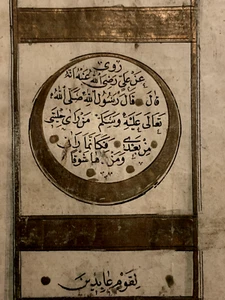 روى
عن علي رضي الله عنه انه
قال قال رسول الله صلى الله
تعالى عليه وسلم من راى حليتي
من بعدي فكانما راني
ومن راها شوقا
لقوم عابدين